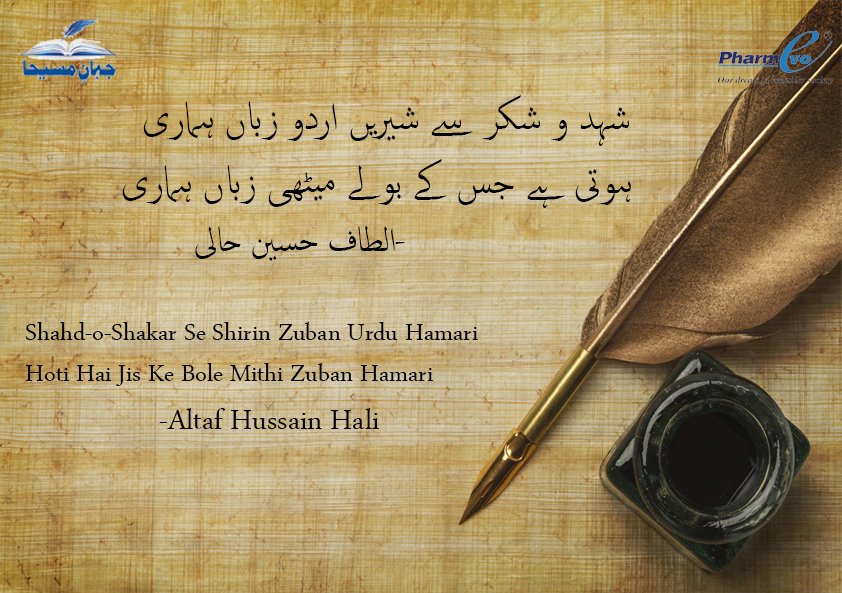 جہان مسیحا
Pharmevo
شہد و شکر سے شیریں اردو زباں ہماری
ہوتی ہے جس کے بولے میٹھی زباں ہماری
-الطاف حسین حالی
Shahd-o-Shakar Se Shirin Zuban Urdu Hamari
Hoti Hai Jis Ke Bole Mithi Zuban Hamari
-Altaf Hussain Hali